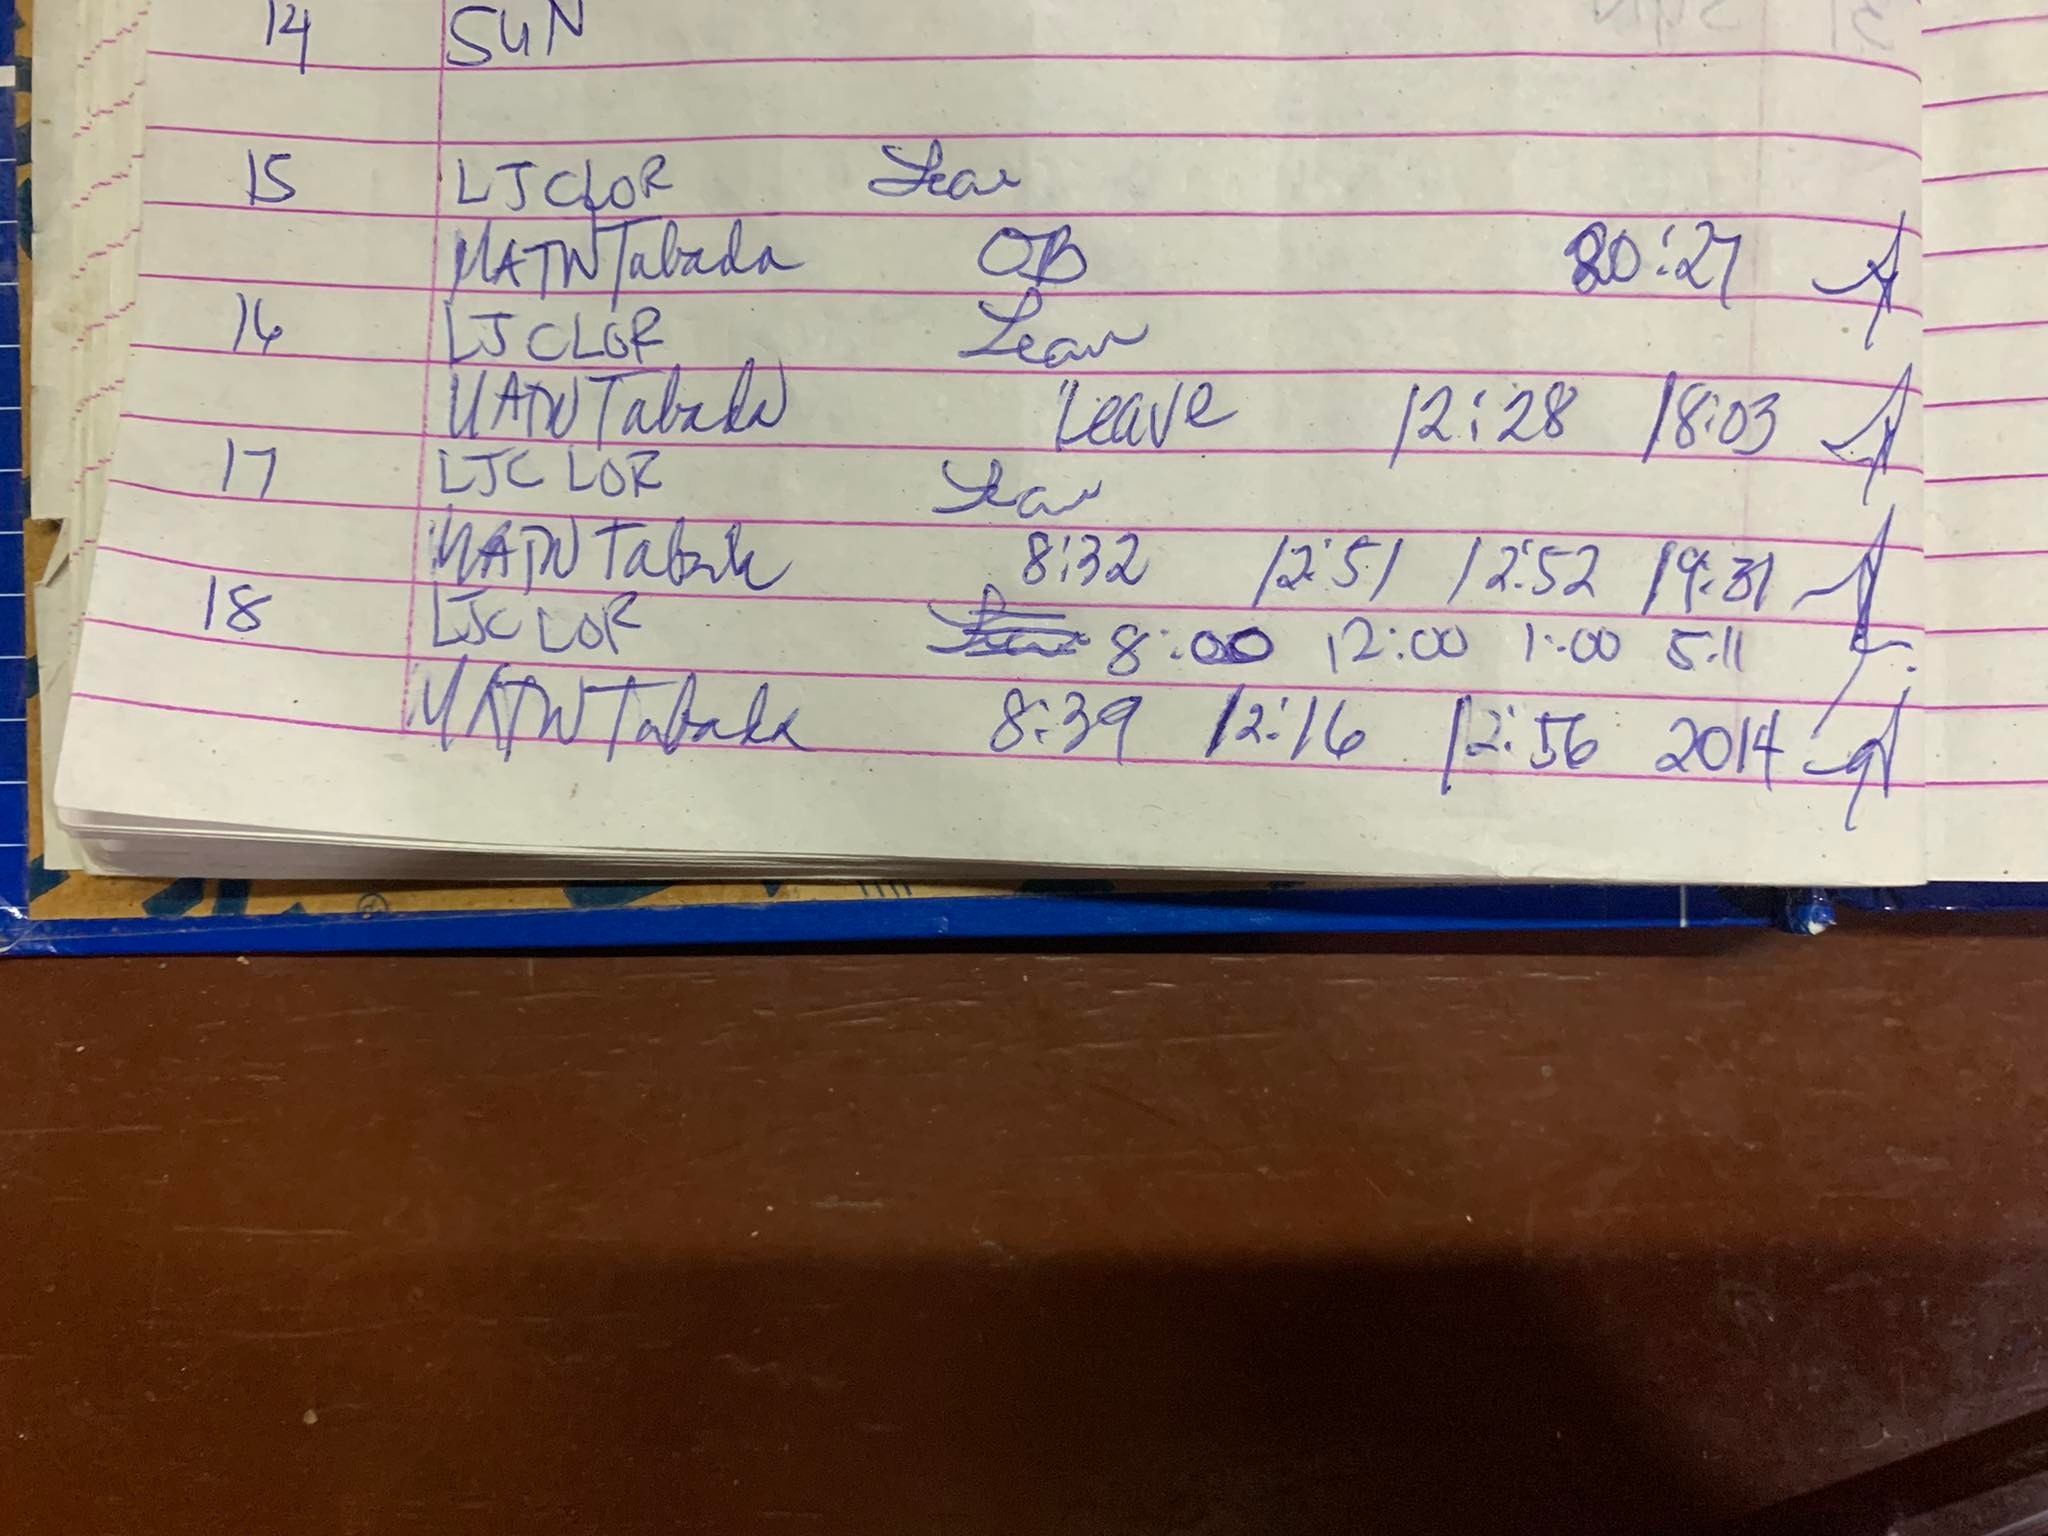 14 SUN
15 LJCLOR Leave
MATNTabada OB 20:27
16 LJCLOR Leave
MATNTabada Leave 12:28 18:03
17 LJCLOR Leave
MATNTabada 8:32 12:51 12:52 19:31
18 LJCLOR 8:00 12:00 1:00 5:11
MATNTabada 8:39 12:16 12:56 2014